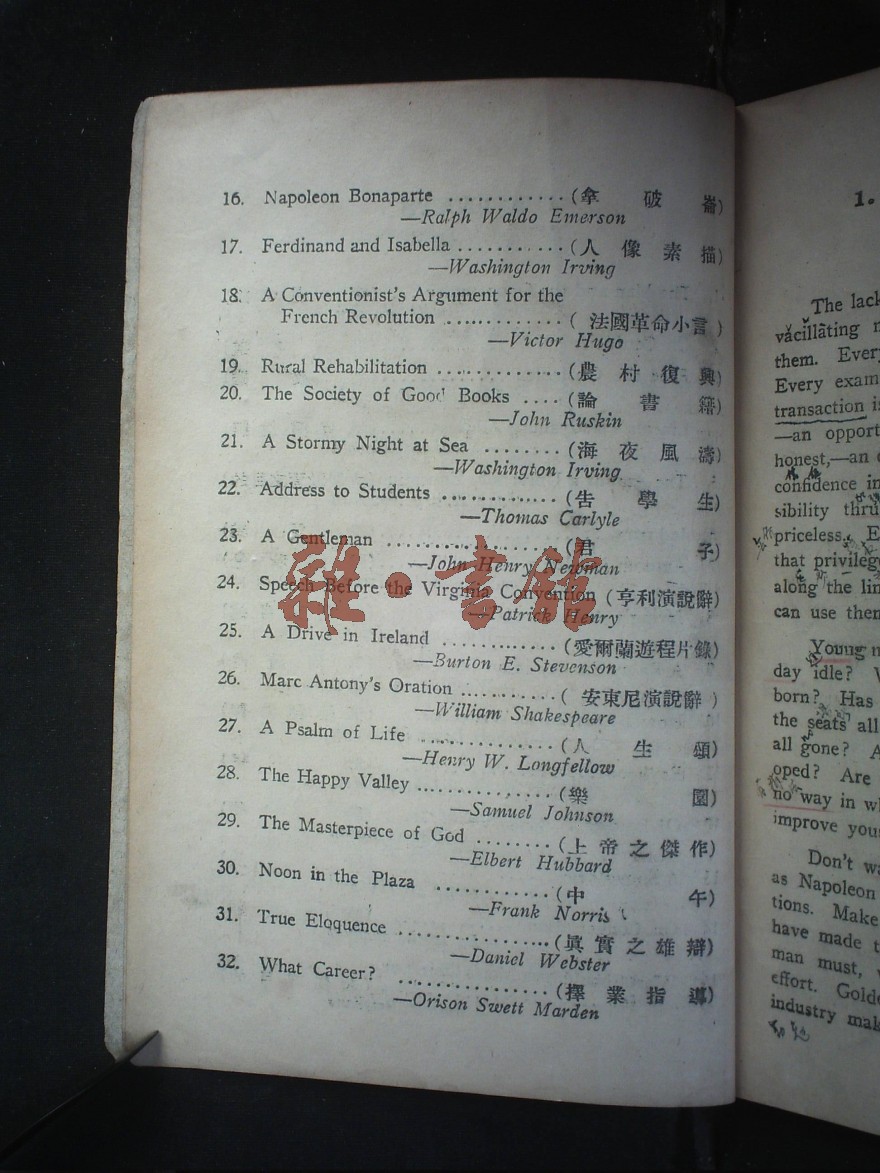 16. Napoleon Bonaparte ............(拿破崙)
—Ralph Waldo Emerson
17. Ferdinand and Isabella ...........(人像素描)
—Washington Irving
18. A Conventionist's Argument for the
French Revolution ............(法國革命小言)
—Victor Hugo
19. Rural Rehabilitation .............(農村復興)
20. The Society of Good Books ....(論書籍)
—John Ruskin
21. A Stormy Night at Sea ........(海夜風濤)
—Washington Irving
22. Address to Students ............(告學生)
—Thomas Carlyle
23. A Gentleman ..................(君子)
—John Henry Newman
24. Speech Before the Virginia Convention (亨利演說辭)
—Patrick Henry
25. A Drive in Ireland ............(愛爾蘭遊程片錄)
—Burton E. Stevenson
26. Marc Antony's Oration ..........(安東尼演說辭)
—William Shakespeare
27. A Psalm of Life ..............(人生頌)
—Henry W. Longfellow
28. The Happy Valley ..............(樂園)
—Samuel Johnson
29. The Masterpiece of God ........(上帝之傑作)
—Elbert Hubbard
30. Noon in the Plaza ............(中午)
—Frank Norris
31. True Eloquence ................(眞實之雄辯)
—Daniel Webster
32. What Career? ................(擇業指導)
—Orison Swett Marden
雜·書館
1.
The lack
văcillāting
them. Every
Every exam
transaction is
—an opport
honest,—an
confidence in
sibility thru
priceless. E
that privilege
along the lin
can use them
Young
day idle?
born? Has
the seats all
all gone? A
oped? Are
no way in
improve
Don't
as Napoleon
tions. Make
have made
man must,
effort. Gold
industry mak